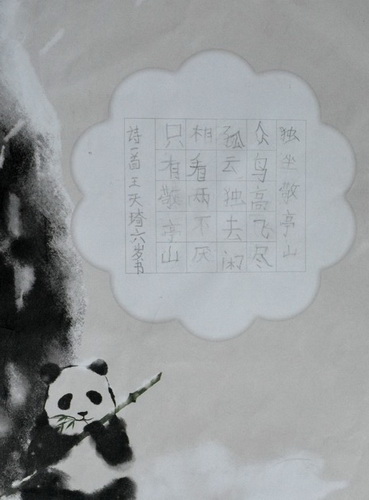 独坐敬亭山
众鸟高飞尽
孤云独去闲
相看两不厌
只有敬亭山
诗一首王天琦六岁书